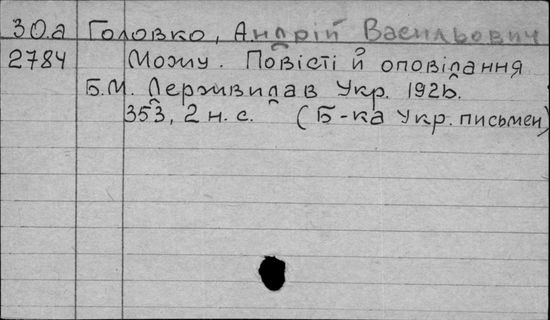 30.а Головко, Андрій Васильович
2784 Можу. Повісті й оповідання
Б.М. Держвидав Укр. 1926.
353, 2 н. с. (Б-ка Укр. письмен)